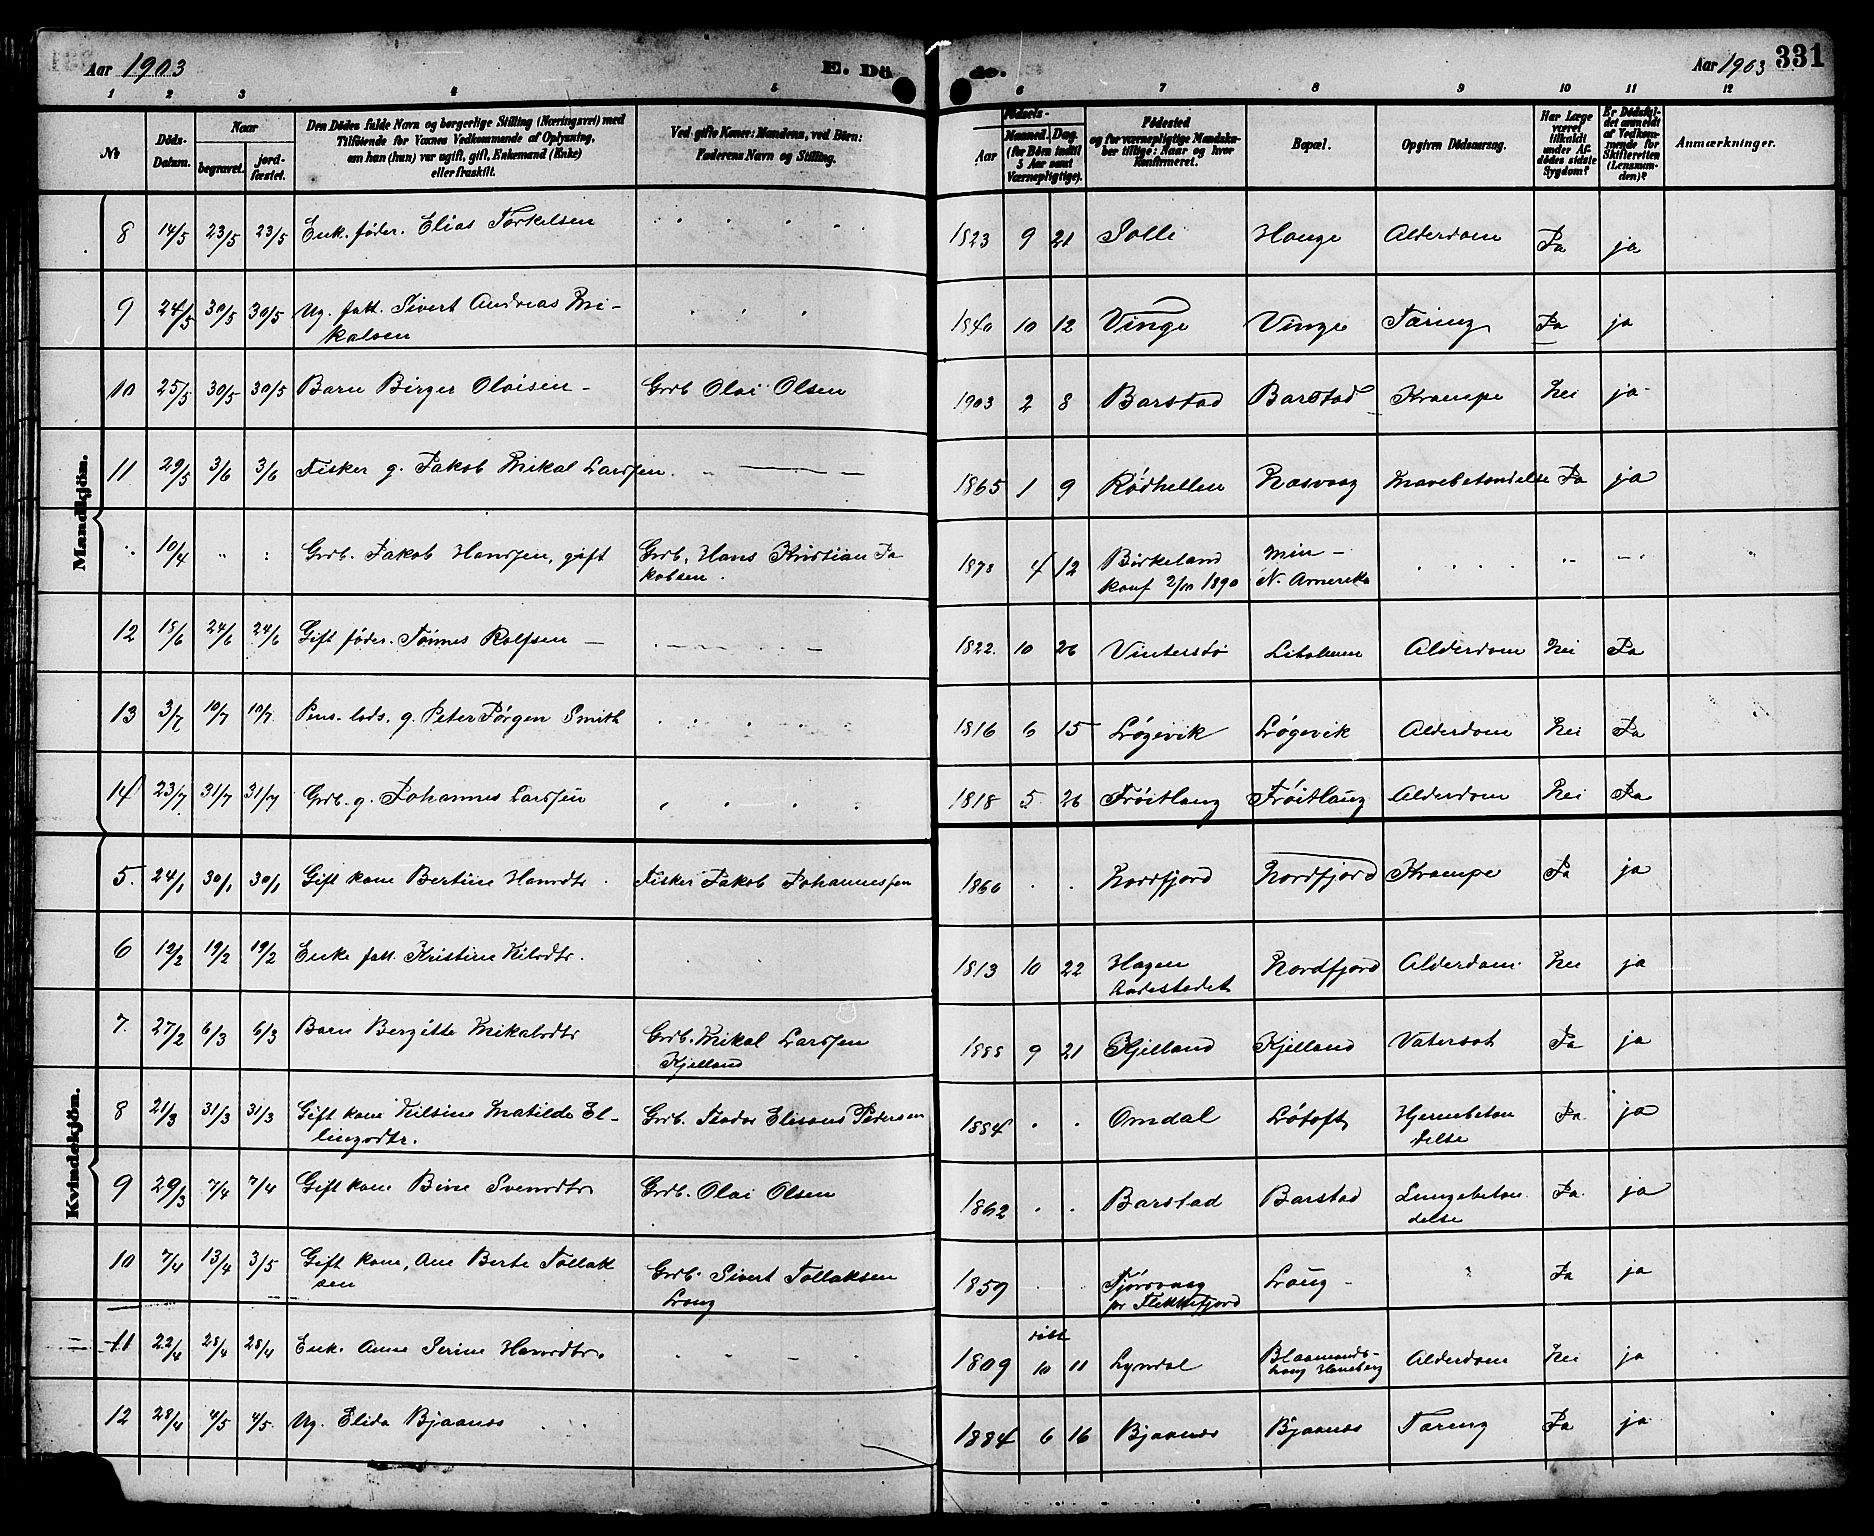 Aar 1903
E. Dö de.
Aar 1903 331
1 2 3 4 5 6 7 8 9 10 11 12
№
Döds-Datum.
Naar
begravet.
jord-fæstet.
Den Dödes fulde Navn og borgerlige Stilling (Næringsvei) med
Tilföiende for Voxnes Vedkommende af Oplysning,
om han (hun) var ugift, gift, Enkemand (Enke)
eller fraskilt.
Ved gifte Koner: Mandens, ved Börn:
Faderens Navn og Stilling.
Födsels-
Aar
Maaned. Dag.
(for Börn indtil
5 Aar samt
Værnepligtige).
Födested
og for værnepligtige Mandskaber tillige: Naar og hvor
konfirmeret.
Bopæl.
Opgiven Dödsaarsag.
Har Læge været tilkaldt under Afdödes sidste Sygdom?
Er Dödsfaldet anmeldt af Vedkommende for Skifteretten (Lensmanden)?
Anmærkninger.
Mandkjön.
8 14/5 23/5 23/5 Enk. föder. Elias Torkelsen 1823 9 21 Solli Hauge Alderdom Ja ja
9 24/5 30/5 30/5 Ug. fatt. Sivert Andreas Mi-
kalsen 1840 10 12 Vinge Vinge Tæring Ja ja
10 25/5 30/5 30/5 Barn Birger Olaisen - Grdb Olai Olsen 1903 2 8 Barstad Barstad Krampe Nei ja
11 29/5 3/6 3/6 Fisker g. Jakob Mikal Larssen 1865 1 9 Rødhellen Rasvaag Mavebetændelse Ja ja
10/4 Grdb. Jakob Hanssen, gift Grdb. Hans Kristian Ja
kobsen. 1878 4 12 Birkeland
konf 2/10 1890 Min -
N. Amerika
12 18/6 24/6 24/6 Gift föder. Tønnes Rolfsen 1822. 10 26 Vinterstø Alderdom Nei Ja
13 3/7 10/7 10/7 Pens. lods. g. Peter Jørgen Smith 1816 6 15 Løgevik Løgevik Alderdom Nei Ja
14 23/7 31/7 31/7 Grdb. g. Johannes Larssen 1818 5 26 Frøitlang Frøitlang Alderdom Nei Ja
Kvindekjön.
5. 24/1 30/1 30/1 Gift kone Bertine Hansdtr. Fisker Jakob Johannessen 1860 Nordfjord Nordfjord Krampe Ja ja
6 12/2 19/2 19/2 Enke fatt. Kristine Nilsdtr. 1813 10 22 Hagen
Nordfjord Alderdom Nei ja
7. 27/2 6/3 6/3 Barn Bergitte Mikalsdtr Grdb. Mikal Larssen
Kjelland 1888 9 21 Kjelland Kjelland Vatersot Ja ja
8 21/3 31/3 31/3 Gift kone Nilsine Matilde El-
lingsdtr. Grdb. Teodor Pedersen 1884 Omdal Løtoft Hjernebetæn
delse Ja ja
9 29/3 7/4 7/4 Gift kone Bine Svensdtr Grdb. Olai Olsen 1862 Barstad Barstad Lungebetæn
delse Ja ja
10 7/4 13/4 3/5 Gift kone, Ane Berte Tollak
sen Grdb. Sivert Tollaksen
1859
pr Flekkefjord Ja ja
11 22/4 28/4 28/4 Enk. Anne Serine Hansdtr. 1809 døbt
10 11 Lyndal Alderdom Nei ja
12 28/4 4/5 4/5 Ug. Elida Bjaanes 1884 6 16 Bjaanes Bjaanes Tæring Ja ja